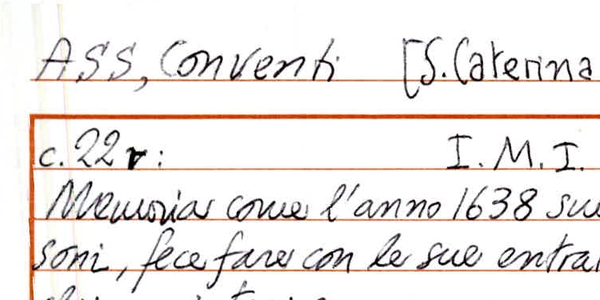 ASS, Conventi [S. Caterina
c. 22r: I. M. I.
Memoria come l'anno 1638 su
soni, fece fare con le sue entra